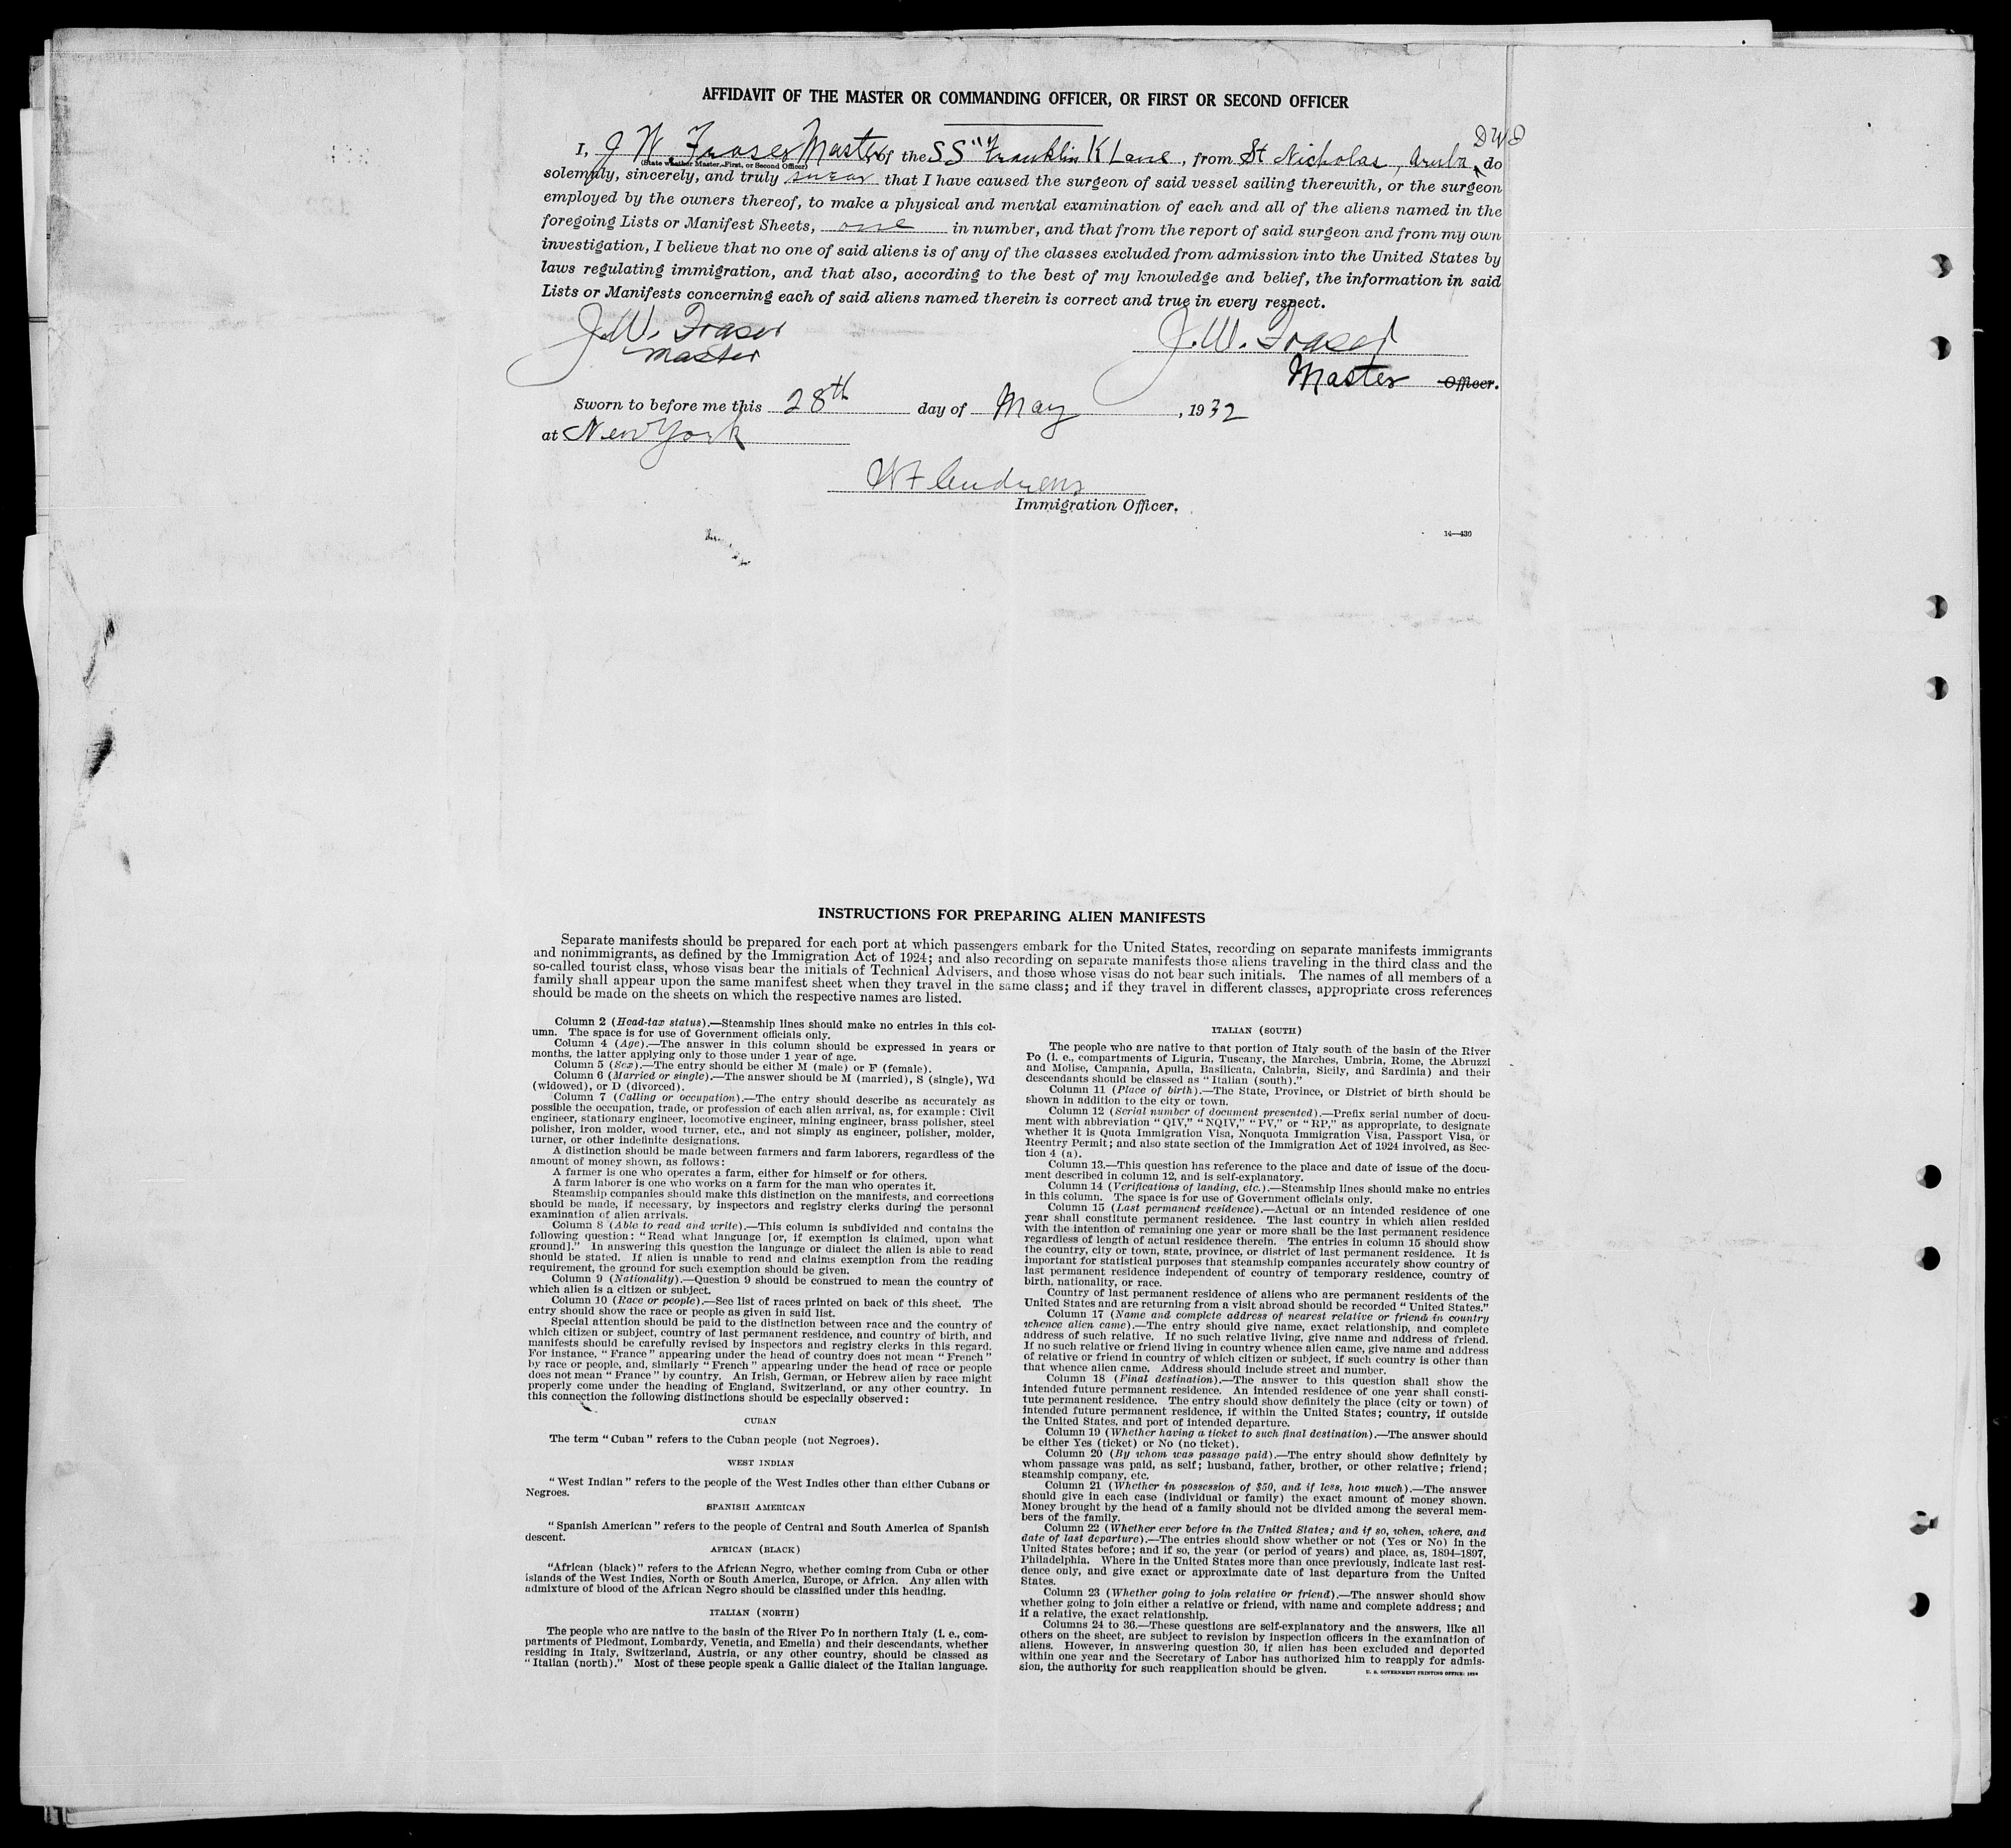 AFFIDAVIT OF THE MASTER OR COMMANDING OFFICER, OR FIRST OR SECOND OFFICER
I, J W. Fraser Master, of the SS "Franklin K Lane, from St Nicholas, Aruba, DWI do
(State whether Master, First, or Second Officer)
solemnly, sincerely, and truly swear that I have caused the surgeon of said vessel sailing therewith, or the surgeon
employed by the owners thereof, to make a physical and mental examination of each and all of the aliens named in the
foregoing Lists or Manifest Sheets, one in number, and that from the report of said surgeon and from my own
investigation, I believe that no one of said aliens is of any of the classes excluded from admission into the United States by
laws regulating immigration, and that also, according to the best of my knowledge and belief, the information in said
Lists or Manifests concerning each of said aliens named therein is correct and true in every respect.
J.W. Fraser
Master
J.W. Fraser
Master Officer.
Sworn to before me this 28th day of May, 1932
at New York
W F Andrews
Immigration Officer.
14—430
INSTRUCTIONS FOR PREPARING ALIEN MANIFESTS
Separate manifests should be prepared for each port at which passengers embark for the United States, recording on separate manifests immigrants
and nonimmigrants, as defined by the Immigration Act of 1924; and also recording on separate manifests those aliens traveling in the third class and the
so-called tourist class, whose visas bear the initials of Technical Advisers, and those whose visas do not bear such initials. The names of all members of a
family shall appear upon the same manifest sheet when they travel in the same class; and if they travel in different classes, appropriate cross references
should be made on the sheets on which the respective names are listed.
Column 2 (Head-tax status).—Steamship lines should make no entries in this col-
umn. The space is for use of Government officials only.
Column 4 (Age).—The answer in this column should be expressed in years or
months, the latter applying only to those under 1 year of age.
Column 5 (Sex).—The entry should be either M (male) or F (female).
Column 6 (Married or single).—The answer should be M (married), S (single), Wd
(widowed), or D (divorced).
Column 7 (Calling or occupation).—The entry should describe as accurately as
possible the occupation, trade, or profession of each alien arrival, as, for example: Civil
engineer, stationary engineer, locomotive engineer, mining engineer, brass polisher, steel
polisher, iron molder, wood turner, etc., and not simply as engineer, polisher, molder,
turner, or other indefinite designations.
A distinction should be made between farmers and farm laborers, regardless of the
amount of money shown, as follows:
A farmer is one who operates a farm, either for himself or for others.
A farm laborer is one who works on a farm for the man who operates it.
Steamship companies should make this distinction on the manifests, and corrections
should be made, if necessary, by inspectors and registry clerks during the personal
examination of alien arrivals.
Column 8 (Able to read and write).—This column is subdivided and contains the
following question: "Read what language [or, if exemption is claimed, upon what
ground]." In answering this question the language or dialect the alien is able to read
should be stated. If alien is unable to read and claims exemption from the reading
requirement, the ground for such exemption should be given.
Column 9 (Nationality).—Question 9 should be construed to mean the country of
which alien is a citizen or subject.
Column 10 (Race or people).—See list of races printed on back of this sheet. The
entry should show the race or people as given in said list.
Special attention should be paid to the distinction between race and the country of
which citizen or subject, country of last permanent residence, and country of birth, and
manifests should be carefully revised by inspectors and registry clerks in this regard.
For instance, "France" appearing under the head of country does not mean "French"
by race or people, and, similarly "French" appearing under the head of race or people
does not mean "France" by country. An Irish, German, or Hebrew alien by race might
properly come under the heading of England, Switzerland, or any other country. In
this connection the following distinctions should be especially observed:
CUBAN
The term "Cuban" refers to the Cuban people (not Negroes).
WEST INDIAN
"West Indian" refers to the people of the West Indies other than either Cubans or
Negroes.
SPANISH AMERICAN
"Spanish American" refers to the people of Central and South America of Spanish
descent.
AFRICAN (BLACK)
"African (black)" refers to the African Negro, whether coming from Cuba or other
islands of the West Indies, North or South America, Europe, or Africa. Any alien with
admixture of blood of the African Negro should be classified under this heading.
ITALIAN (NORTH)
The people who are native to the basin of the River Po in northern Italy (i. e., com-
partments of Piedmont, Lombardy, Venetia, and Emelia) and their descendants, whether
residing in Italy, Switzerland, Austria, or any other country, should be classed as
"Italian (north)." Most of these people speak a Gallic dialect of the Italian language.
ITALIAN (SOUTH)
The people who are native to that portion of Italy south of the basin of the River
Po (i. e., compartments of Liguria, Tuscany, the Marches, Umbria, Rome, the Abruzzi
and Molise, Campania, Apulia, Basilicata, Calabria, Sicily, and Sardinia) and their
descendants should be classed as "Italian (south)."
Column 11 (Place of birth).—The State, Province, or District of birth should be
shown in addition to the city or town.
Column 12 (Serial number of document presented).—Prefix serial number of docu-
ment with abbreviation "QIV," "NQIV," "PV," or "RP," as appropriate, to designate
whether it is Quota Immigration Visa, Nonquota Immigration Visa, Passport Visa, or
Reentry Permit; and also state section of the Immigration Act of 1924 involved, as Sec-
tion 4 (a).
Column 13.—This question has reference to the place and date of issue of the docu-
ment described in column 12, and is self-explanatory.
Column 14 (Verifications of landing, etc.).—Steamship lines should make no entries
in this column. The space is for use of Government officials only.
Column 15 (Last permanent residence).—Actual or an intended residence of one
year shall constitute permanent residence. The last country in which alien resided
with the intention of remaining one year or more shall be the last permanent residence
regardless of length of actual residence therein. The entries in column 15 should show
the country, city or town, state, province, or district of last permanent residence. It is
important for statistical purposes that steamship companies accurately show country of
last permanent residence independent of country of temporary residence, country of
birth, nationality, or race.
Country of last permanent residence of aliens who are permanent residents of the
United States and are returning from a visit abroad should be recorded "United States."
Column 17 (Name and complete address of nearest relative or friend in country
whence alien came).—The entry should give name, exact relationship, and complete
address of such relative. If no such relative living, give name and address of friend.
If no such relative or friend living in country whence alien came, give name and address
of relative or friend in country of which citizen or subject, if such country is other than
that whence alien came. Address should include street and number.
Column 18 (Final destination).—The answer to this question shall show the
intended future permanent residence. An intended residence of one year shall consti-
tute permanent residence. The entry should show definitely the place (city or town) of
intended future permanent residence, if within the United States; country, if outside
the United States, and port of intended departure.
Column 19 (Whether having a ticket to such final destination).—The answer should
be either Yes (ticket) or No (no ticket).
Column 20 (By whom was passage paid).—The entry should show definitely by
whom passage was paid, as self; husband, father, brother, or other relative; friend;
steamship company, etc.
Column 21 (Whether in possession of $50, and if less, how much).—The answer
should give in each case (individual or family) the exact amount of money shown.
Money brought by the head of a family should not be divided among the several mem-
bers of the family.
Column 22 (Whether ever before in the United States; and if so, when, where, and
date of last departure).—The entries should show whether or not (Yes or No) in the
United States before; and if so, the year (or period of years) and place, as, 1894–1897,
Philadelphia. Where in the United States more than once previously, indicate last resi-
dence only, and give exact or approximate date of last departure from the United
States.
Column 23 (Whether going to join relative or friend).—The answer should show
whether going to join either a relative or friend, with name and complete address; and
if a relative, the exact relationship.
Columns 24 to 36.—These questions are self-explanatory and the answers, like all
others on the sheet, are subject to revision by inspection officers in the examination of
aliens. However, in answering question 30, if alien has been excluded and deported
within one year and the Secretary of Labor has authorized him to reapply for admis-
sion, the authority for such reapplication should be given.
U. S. GOVERNMENT PRINTING OFFICE: